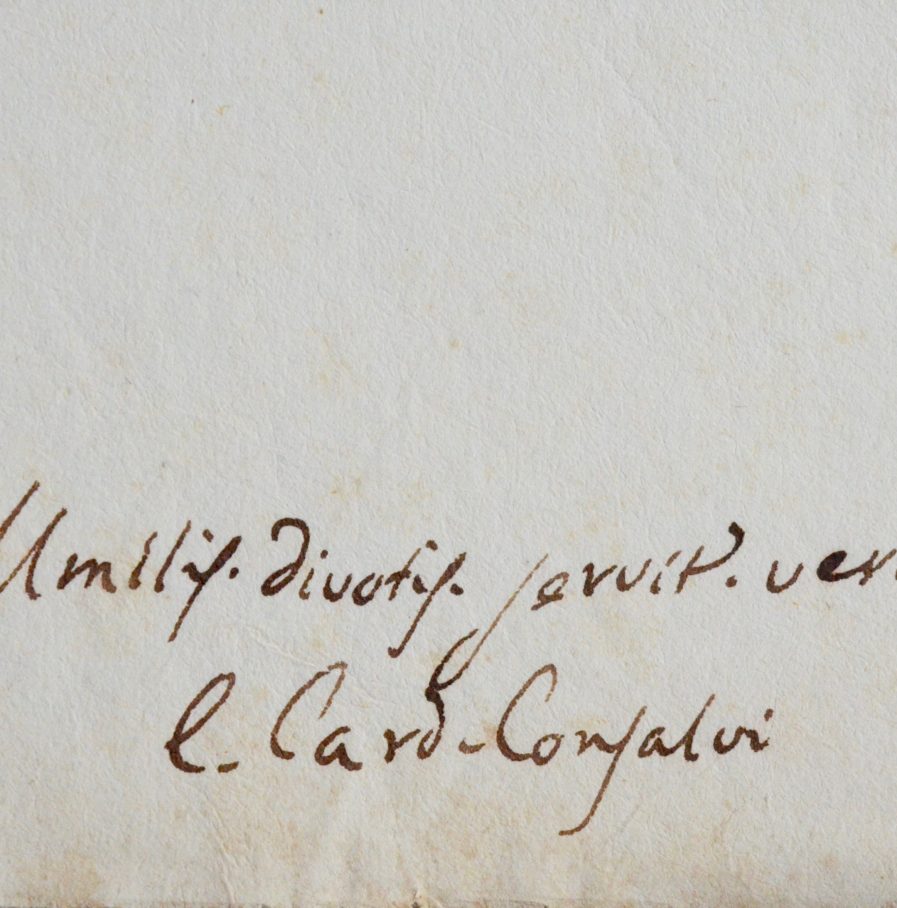 Umiliſ. divotiſ. ſervit. ver
E. Card. Conſalvi